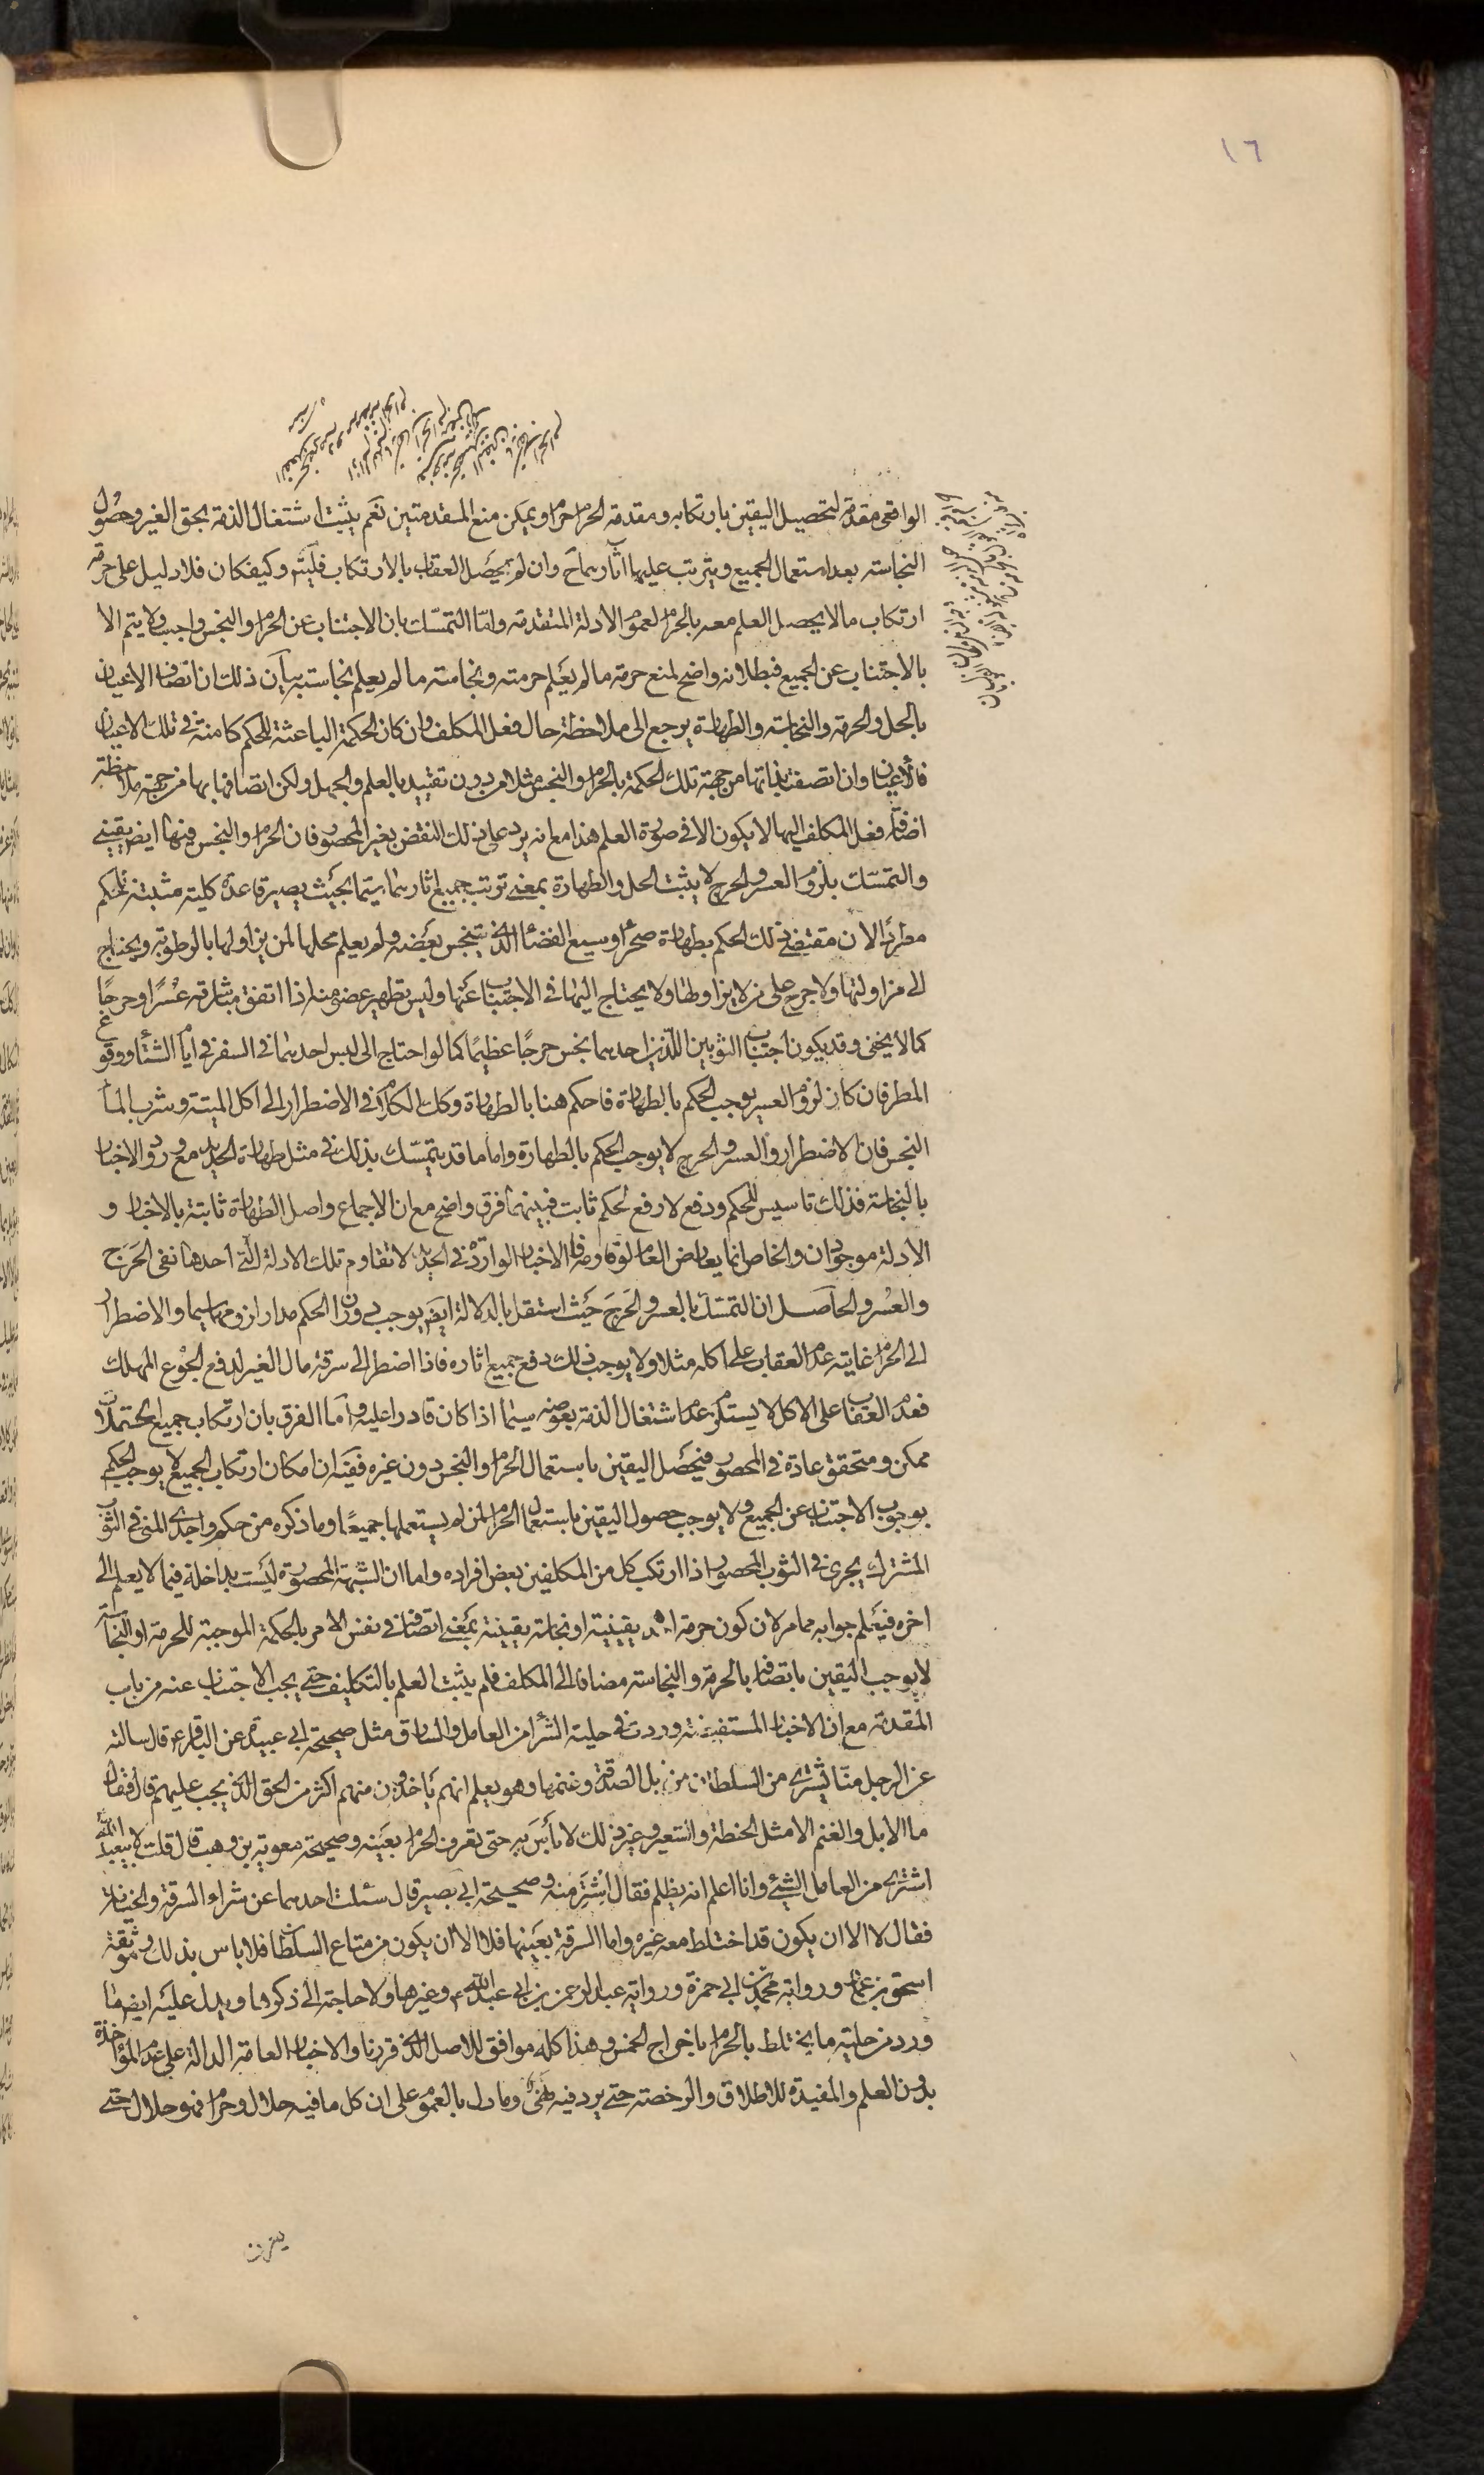 ١٦
الواقعى مقدمة لتحصيل اليقين بارتكابه ومقدمة الحرام حرام ويمكن منع المقدمتين نعم يثبت اشتغال الذمة بحق الغير وحصول
النجاسته بعد استعمال الجميع ويترتب عليها اثارهما ح وان لم يحصل العقاب بالارتكاب فليتم وكيفكان فلا دليل على حرمة
ارتكاب ما لا يحصل العلم معه بالحرام لعموم الادلة المتقدمه وامّا التمسّك بان الاجتناب عن الحرام والنجس واجب ولا يتم الا
بالاجتناب عن الجميع فبطلانه واضح لمنع حرمة ما لم يعلم حرمته ونجاسته ما لم يعلم نجاسته بيان ذلك ان اتصاف الاعيان
بالحل والحرمة والنجاسته والطهارة يرجع الى ملاحظة حال فعل المكلف وان كان الحكمة الباعثة للحكم كامنة فى تلك الاعيان
فالاعيان وان اتصفت بذاتها من جهة تلك الحكمة بالحرام والنجس مثلا من دون تقييد بالعلم والجهل ولكن اتصافها بها من جهة ملاحظة
اضافة فعل المكلف اليها لا يكون الا فى صورة العلم هذا مع انه يرد على ذلك النقض بغير المحصور فان الحرام والنجس فيها ايضا يقينى
والتمسّك بلزوم العسر والحرج لا يثبت الحل والطهارة بمعنى ترتب جميع اثارهما سيّما بحيث يصير قاعدة كلية مثبتة للحكم
مطردا لان مقتضى ذلك الحكم بطهارة صحراء وسيع الفضاء الذى تنجس بعضه ولم يعلم محلها لمن يزاولها بالرطوبة ويحتاج
الى مزاولتها ولا حرج على من لا يزاولها ولا يحتاج اليها فى الاجتناب عنها وليس تطهير عضو منه اذا اتفق مباشرته عسرًا وحرجًا
كما لا يخفى وقد يكون اجتناب الثوبين اللذين احدهما نجس حرجًا عظيمًا كما لو احتاج الى لبس احدهما فى السفر فى ايام الشتاء ووقوع
المطر فان كان لزوم العسر يوجب الحكم بالطهارة فاحكم هنا بالطهارة وكك الكلام فى الاضطرار الى اكل الميتة وشرب الماء
النجس فان الاضطرار والعسر والحرج لا يوجب الحكم بالطهارة واما ما قد يتمسّك بذلك فى مثل طهارة الحديد مع ورود الاخبار
بالنجاسة فذلك تاسيس للحكم ودفع لا رفع لحكم ثابت فبينهما فرق واضح مع ان الاجماع واصل الطهارة ثابتة بالاخبار و
الادلة موجودان والخاص انما يعارض العام لو قاومه فالاخبار الواردة فى الحديد لا تقاوم تلك الادلة التى احدها نفى الحَرَج
والعُسر والحاصل ان التمسّك بالعسر والحَرَج حيث استقل بالدلالة ايضا يوجب دوران الحكم مدار لزومهما سيما والاضطرار
الى الحرام غايته عدم العقاب على اكله مثلا ولا يوجب ذلك دفع جميع اثاره فاذا اضطر الى سرقة مال الغير لدفع الجوع المهلك
فعدم العقاب على الاكل لا يستلزم عدم اشتغال الذمة بعوضه سيّما اذا كان قادرا عليه وأما الفرق بان ارتكاب جميع المحتملات
ممكن ومتحقق عادة فى المحصور فيحصل اليقين باستعمال الحرام والنجس دون غيره ففيه ان امكان ارتكاب الجميع لا يوجب الحكم
بوجوب الاجتناب عن الجميع ولا يوجب حصول اليقين باستعمال الحرام لمن لم يستعملها جميعًا وما ذكره من حكم واجدى المنى فى الثوب
المشترك يجرى فى الثوب المحصور اذا ارتكب كل من المكلفين بعض افراده واما ان الشبهة المحصورة ليست بداخلة فيما لا يعلم الى
اخره فيعلم جوابه مما مر لان كون حرمة يقينية او نجاسة يقينية بمعنى اتصافه فى نفس الامر بالحكمة الموجبة للحرمة او النجاسة
لا يوجب اليقين باتصافه بالحرمة والنجاسته مضافا الى المكلف فلم يثبت العلم بالتكليف حتى يجب الاجتناب عنه من باب
المقدمة مع ان الاخبار المستفيضة وردت فى حلية الشراء من العامل والسارق مثل صحيحة ابى عبيدة عن الباقر ع قال سالته
عن الرجل منّا يشترى من السلطان من ابل الصدقة وغنمها وهو يعلم انهم يأخذون منهم اكثر من الحق الذى يجب عليهم قال فقال
ما الابل والغنم الا مثل الحنطة والشعير وغير ذلك لا بأس به حتى تعرف الحرام بعينه وصحيحة معوية بن وهب قال قلت لابيعبد الله
اشترى من العامل الشئ وانا اعلم انه يظلم فقال اشتر منه وصحيحة ابى بصير قال سئلت احدهما عن شراء السرقة والخيانة
فقال لا الا ان يكون قد اختلط معه غيره واما السرقة بعينها فلا الا ان يكون من متاع السلطان فلا باس بذلك وموثقة
اسحق بن عمار ورواية محمد بن ابى حمزة ورواية عبد الرحمن بن ابى عبد الله وغيرها ولا حاجة الى ذكرها ويدل عليه ايضا ما
ورد من حلية ما يختلط بالحرام باخراج الخمس وهذا كله موافق للاصل الذى قررنا والاخبار العامة الدالة على عدم المؤاخذة
بدون العلم والمفيدة للاطلاق والرخصة حتى يرد فيه نهى وما دل بالعموم على ان كل ما فيه حلال وحرام فهو حلال حتى